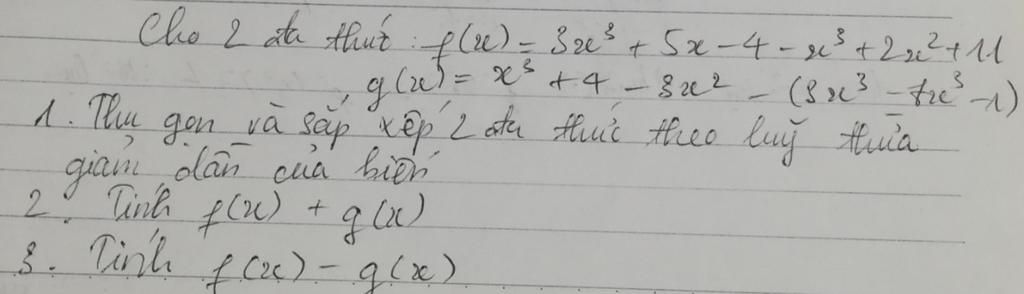 Cho 2 đa thức : f(x) = 3x³ + 5x - 4 - x³ + 2x² + 11
g(x) = x³ + 4 - 3x² - (3x³ - 7x³ - 1)
1. Thu gọn và sắp xếp 2 đa thức theo luỹ thừa
giảm dần của biến
2. Tính f(x) + g(x)
3. Tính f(x) - g(x)